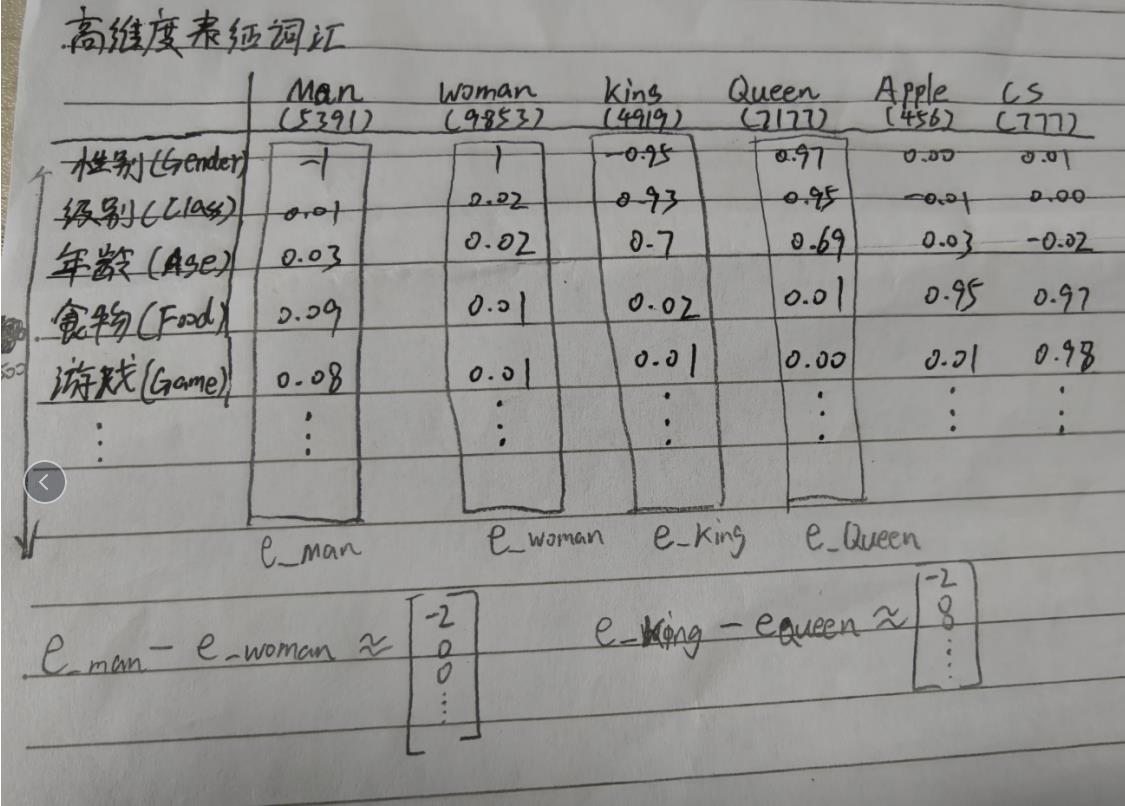 高维度表征词汇
Man woman king Queen Apple CS
(5391) (9853) (4919) (7177) (456) (777)
性别(Gender) -1 1 -0.95 0.97 0.00 0.01
级别(Class) 0.01 0.02 0.93 0.95 -0.01 0.00
年龄(Age) 0.03 0.02 0.7 0.69 0.03 -0.02
食物(Food) 0.09 0.01 0.02 0.01 0.95 0.97
游戏(Game) 0.08 0.01 0.01 0.00 0.01 0.98
e_man e_woman e_king e_Queen
e_man - e_woman ≈ [-2 0 0 ⋮]
e_king - equeen ≈ [-2 8 ⋮]